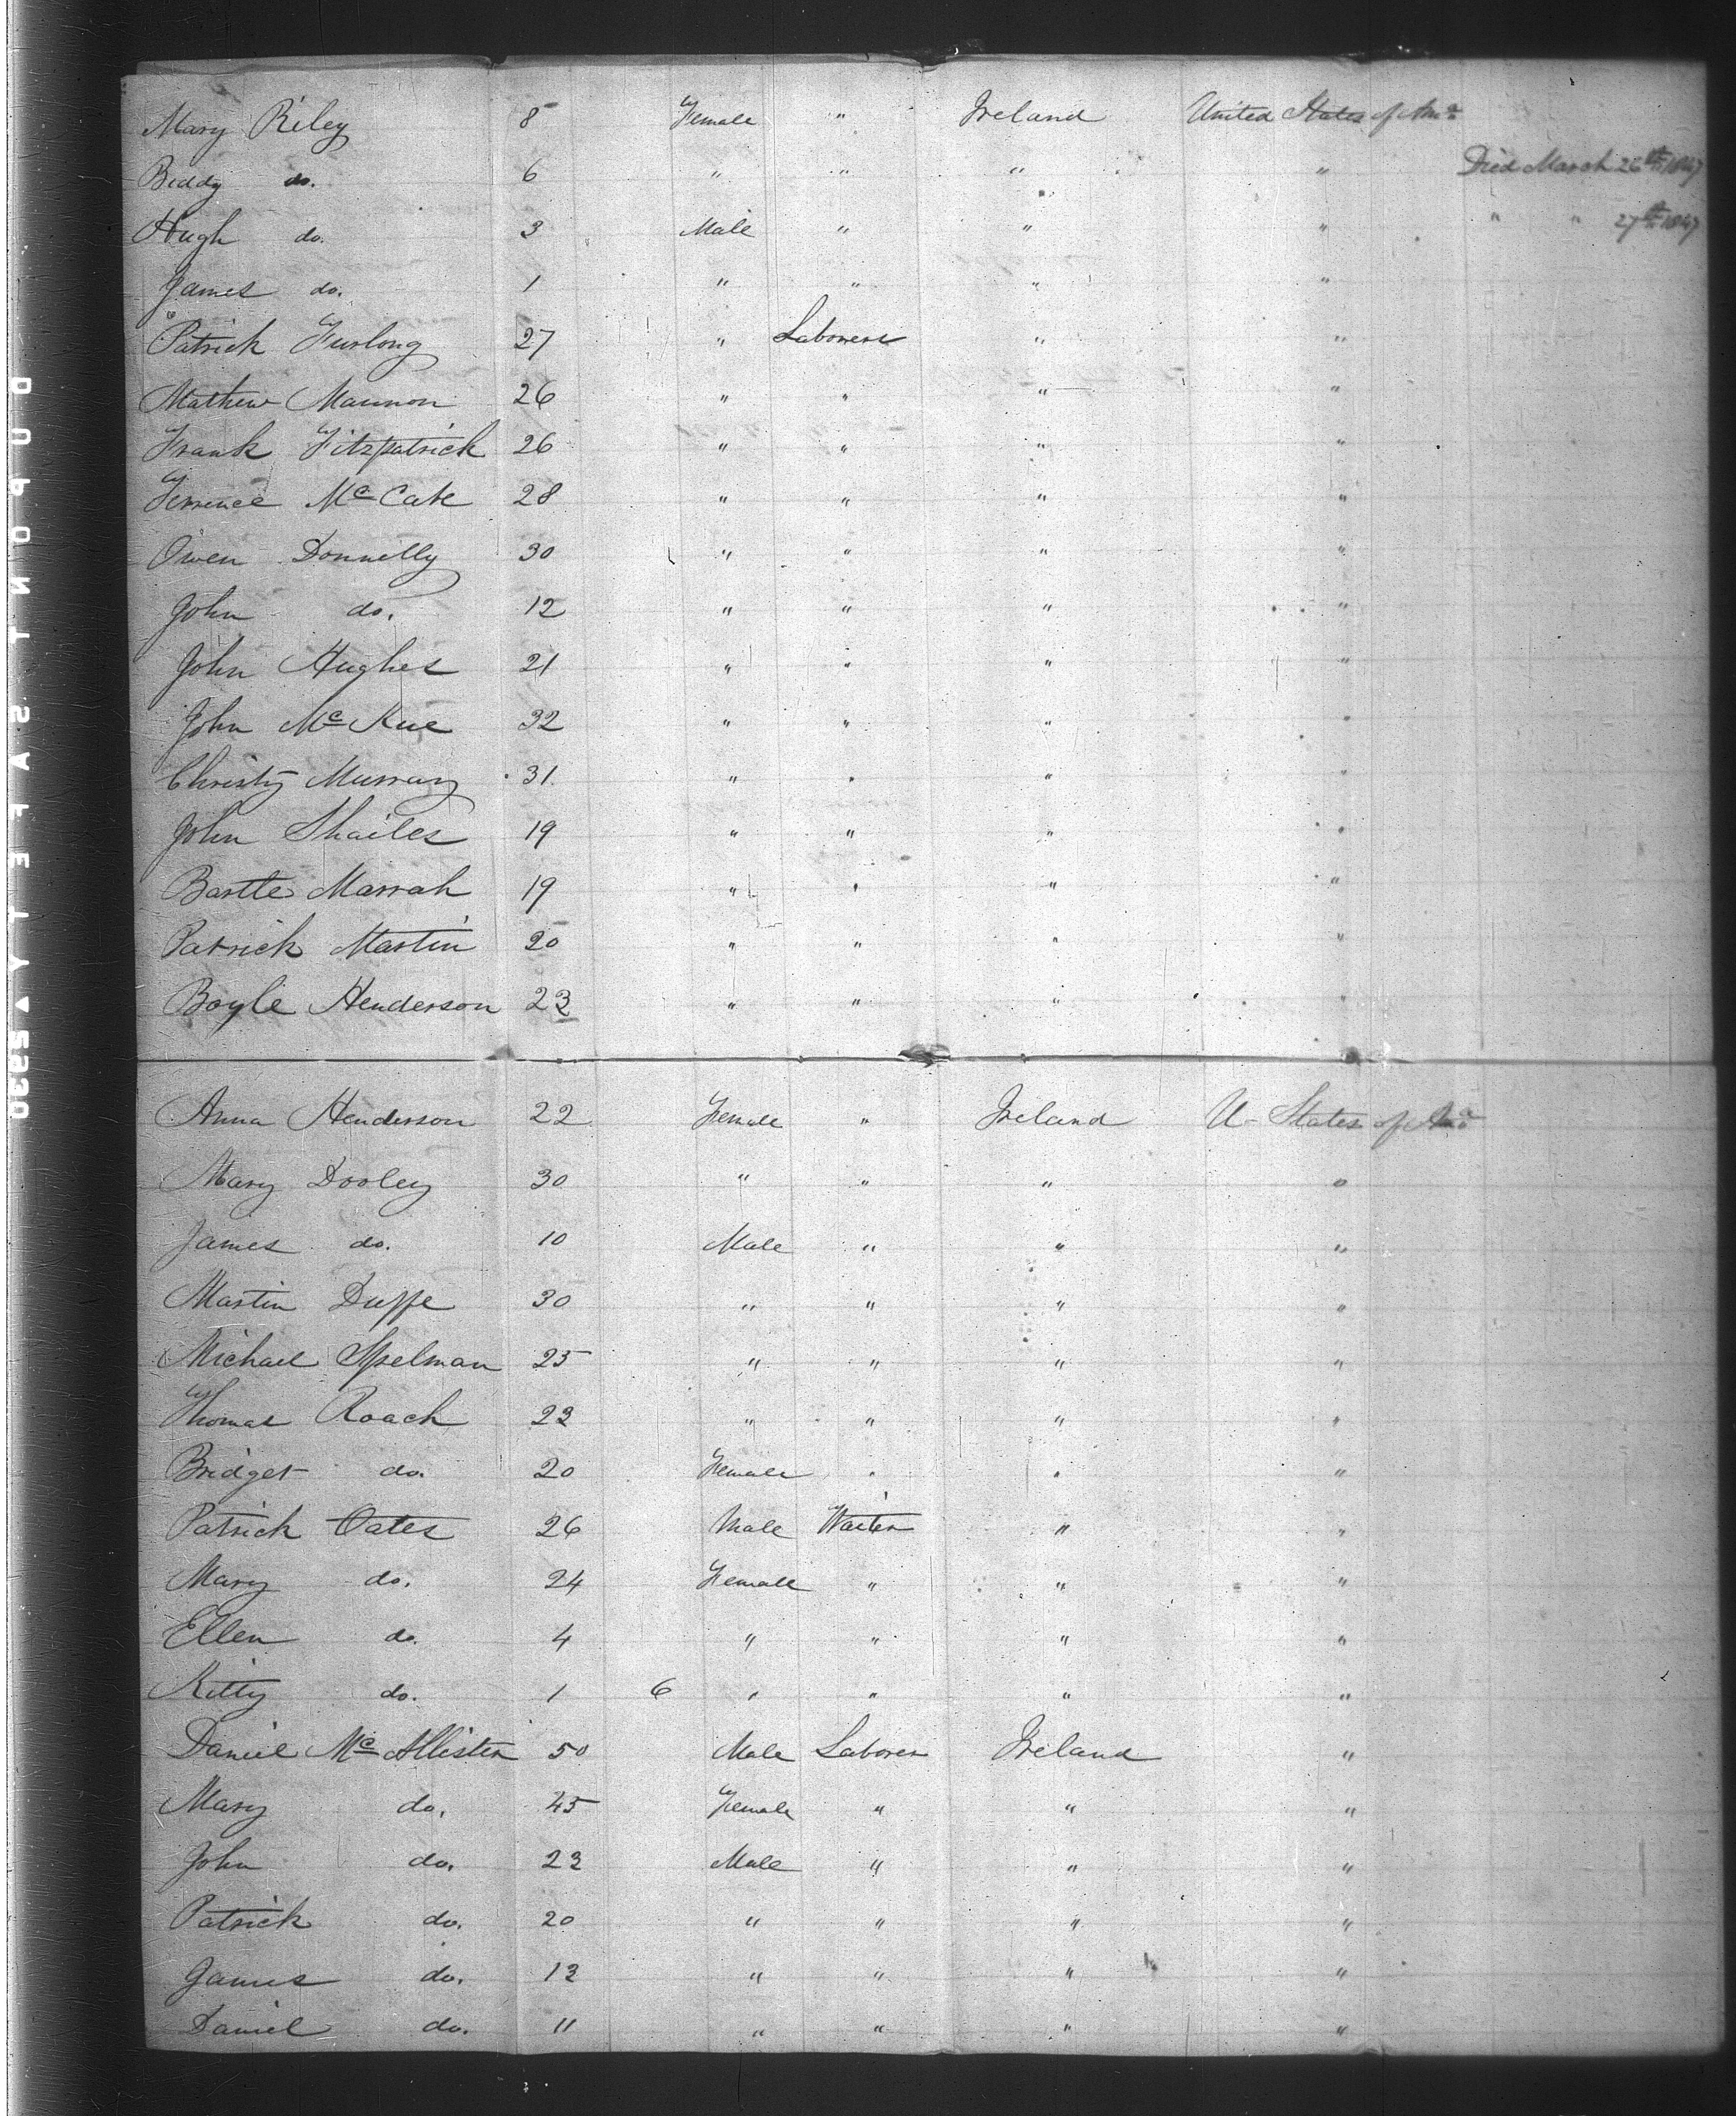 Mary Riley 8 Female " Ireland United States of Am^a
Biddy do. 6 " " " " Died March 26th 1847
Hugh do. 3 Male " " " " " 27th 1847
James do. 1 " " " "
Patrick Furlong 27 " Laborers " "
Mathew Mannon 26 " " " "
Frank Fitzpatrick 26 " " " "
Terrence McCabe 28 " " " "
Owen Donnelly 30 " " " "
John do. 12 " " " "
John Hughes 21 " " " "
John McKue 32 " " " "
Christy Murray 31 " " " "
John Shailes 19 " " " "
Bartle Marrah 19 " " " "
Patrick Martin 20 " " " "
Boyle Henderson 23 " " " "
Anna Henderson 22 Female " Ireland U-States of Am^a
Mary Dooley 30 " " " "
James do. 10 Male " " "
Martin Duffe 30 " " " "
Michael Spelman 25 " " " "
Thomas Roach 23 " " " "
Bridget do. 20 Female " " "
Patrick Oates 26 Male Waiter " "
Mary do. 24 Female " " "
Ellen do. 4 " " " "
Kitty do. 1 6 " " " "
Daniel McAllister 50 Male Laborer Ireland "
Mary do. 45 Female " " "
John do. 23 Male " " "
Patrick do. 20 " " " "
James do. 13 " " " "
Daniel do. 11 " " " "
DUPONT S A F E T Y ▲ 5330